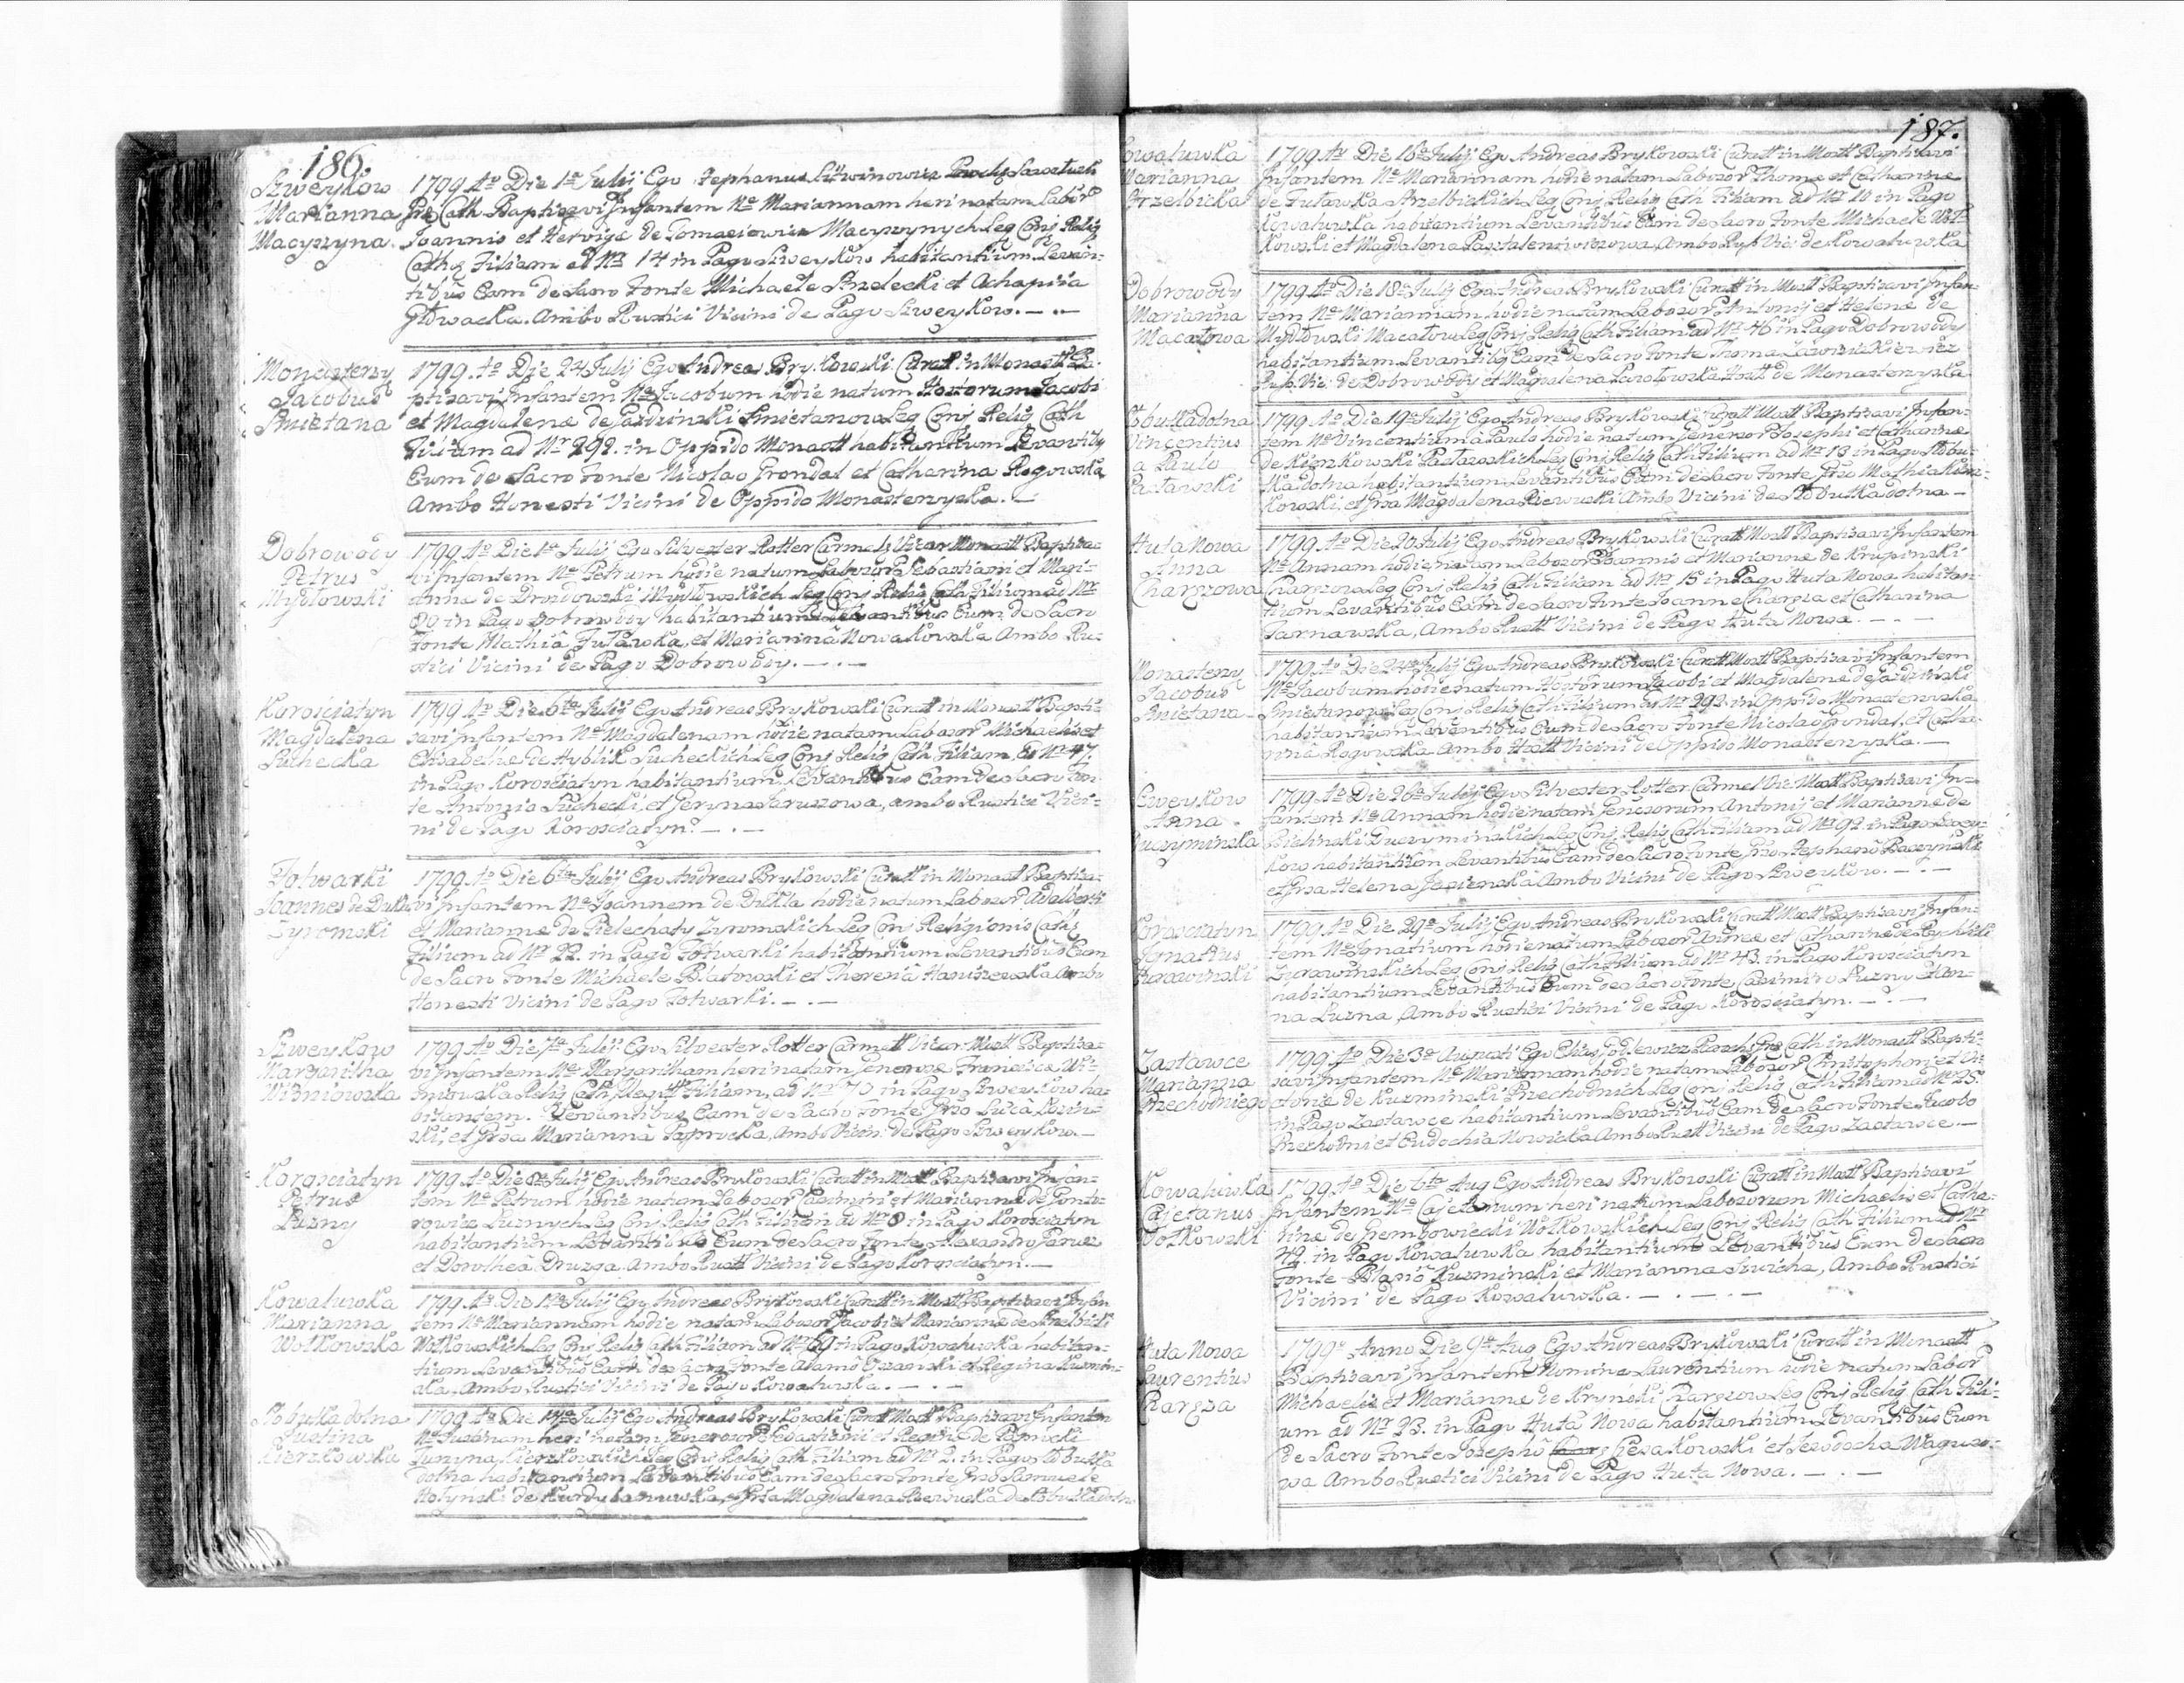 186.
Szweyków
Marianna
Macyszyna.
1799 Aō Die 1ª Julij Ego Stephanus Litwinowicz
Cath Baptisavi Infantem Nē Mariannam heri natam Labor
Joannis et Hedvigæ de Tomasiewicz Macyszynych Leg Conj Relig
Cath Filiam ad Nr 14 in Pago Szweyków habitantium Levan-
tibus Eam de Sacro Fonte Michaele Strzelecki et Achapita
Głowacka. Ambo Rustici Vicini de Pago Szweyków.
Monasterzy
Jacobus
Śmietana
1799. Aō Die 24 Julij Ego Andreas Brykowski Curatt in Monastt Ba-
ptisavi Infantem Nē Jacobum hodie natum Honorum Jacobi
et Magdalenæ de Jazdzinski Śmietanow Leg Conj Relig Cath
Filium ad Nr 292. in Oppido Monastt habitantium Levantibus
Eum de Sacro Fonte Nicolao Grondal et Catharina Rogowska
Ambo Honesti Vicini de Oppido Monasterzyska.
Dobrowody
Petrus
Mydłowski
1799. Aō Die 1ª Julij Ego Silvester Rotter Carmel Vicar Monastt Baptisa-
vi Infantem Nē Petrum hodie natum Labosor Sebastiani et Mari-
annæ de Drozdowski Mydłowskich Leg Conj Relig Cath Filium ad Nr
80 in Pago Dobrowody habitantium Levantibus Eum de Sacro
Fonte Mathia Fuławka, et Marianna Nowakowska Ambo Ru-
stici Vicini de Pago Dobrowody.
Korosciatyn
Magdalena
Suchecka
1799 Aō Die 6ta Julij Ego Andreas Brykowski Curatt in Monast Bapti-
savi Infantem Nē Magdalenam hodie natam Labosor Michaelis et
Elisabethæ de Hyblik Sucheckich Leg Conj Relig Cath Filiam, ad Nr 47.
in Pago Korosciatyn habitantium, Levantibus Eam de Sacro Fon-
te Antonio Suchecki, et Jeryna Jaruszowa, ambo Rustici Vici-
ni de Pago Korosciatyn.
Folwarki
Joannes de Dukla
Zyromski
1799 Aō Die 6ta Julij Ego Andreas Brykowski Curatt in Monast Baptisa-
vi Infantem Nē Joannem de Dukla hodie natum Labosor Adalberti
et Mariannæ de Pielechaty Zyromskich Leg Conj Religionis Cath
Filium ad Nr 22. in Pago Folwarki habitantium Levantibus Eum
de Sacro Fonte Michaele Błatowski et Thoreniâ Haniszewska Ambo
Honesti Vicini de Pago Folwarki.
Szweyków
Margaritha
Wiśniowska
1799 Aō Die 7ª Julij Ego Silvester Rotter Carmel Vicar Monstt Baptisa-
vi Infantem Nē Margaritham heri natam Generosæ Franciscæ Wi-
śniowska Relig Cath Filiam, ad Nr 70 in Pago Szweyków ha-
bitantem. Levantibus Eam de Sacro Fonte Lucâ Lozin-
ski, et Marianna Paprocka, Ambo Vicin. de Pago Szweykow.
Korosciatyn
Petrus
Luzny
1799. Aō Die Julij Ego Andreas Brykowski Curatt in Mostt Baptisavi Infan-
tem Nē Petrum hodie natum Labosor Casimiri et Mariannæ de Ponto-
rowicz Luznych Leg Conj Relig Cath Filium ad Nr 8 in Pago Korosciatyn
habitantium Levantibus Eum de Sacro Fonte Alexandro Janusz
et Dorothea Druzga. Ambo Rustt Vicini de Pago Korosciatyn.
Kowaluwka
Marianna
Wołkowska
1799. Aō Die Julij Ego Andreas Brykowski Curatt in Mostt Baptisavi Infan
tem Nē Mariannam hodie natam Labosor Jacobi et Mariannæ de Strzelbicki
Wołkowskich Leg Conj Relig Cath Filiam ad Nr 69 in Pago Kowaluwka habitan-
tium Levantibus Eam de Sacro Fonte Adamo et Regina Kuzmin-
ska, Ambo Rustici Vicini de Pago Kowaluwka.
Słobutka dolna
Justina
Kierzkowska
1799 Aō Die Julij Ego Andreas Brykowski Curatt Mostt Baptisavi Infantem
Nē Justinam heri natam Generosor Sebastiani et Reginæ de
Kierzkowskich Leg Conj Relig Cath Filiam ad Nr 2. in Pago Słobutka
dolna habitantium Levantibus Eam de Sacro Fonte Samuele
Hołynski de Kurdybanuwka, et Magdalena Rzewuska de Słobutka dolna
187.
Kowaluwka
Marianna
Strzelbicka
1799 Aō Die 16ª Julij Ego Andreas Brykowski Curatt in Mostt Baptisavi
Infantem Nē Mariannam hodie natam Labosor Thomæ et Catharinæ
de Fuławka Strzelbickich Leg Conj Relig Cath Filiam ad Nr 10 in Pago
Kowaluwka habitantium Levantibus Eam de Sacro Fonte Michaele Woł-
kowski et Magdalena Ambo Rus Vici de Kowaluwka
Dobrowody
Marianna
Macałowa
1799 Aō Die 18ª Julij Ego Andreas Brykowski Curatt in Mostt Baptisavi Infan-
tem Nē Mariannam hodie natam Labosor Antonij et Helenæ de
Mydłowski Macałow Leg Conj Relig Cath Filiam ad Nr 46 in Pago Dobrowody
habitantium Levantibus Eam de Sacro Fonte Thoma
Rus. Vic. de Dobrowody et Magdalena Honstt de Monasterzyska
Słobutka dolna
Vincentius
a Paulo
Pacławski
1799 Aō Die 19ª Julij Ego Andreas Brykowski Curatt Mostt Baptisavi Infan-
tem Nē Vincentium a Paulo hodie natum Generosor Josephi et Catharinæ
de Kierzkowski Pacławskich Leg Conj Relig Cath Filium ad Nr 13 in Pago Słobu-
tka dolna habitantium Levantibus Eum de Sacro Fonte Mathia Kierz-
kowski, et Magdalena Rzewuski Ambo Vicini de Słobutka dolna
Huta Nowa
Anna
Chargzowa
1799 Aō Die 20 Julij Ego Andreas Brykowski Curatt Mostt Baptisavi Infantem
Nē Annam hodie natam Labosor Joannis et Mariannæ de Krupinski
Chargzow Leg Conj Relig Cath Filiam ad Nr 15 in Pago Huta Nowa habitan-
tium Levantibus Eam de Sacro Fonte Joanne Chargza et Catharina
Tarnawska, Ambo Rustt Vicini de Pago Huta Nowa.
Monasterzy
Jacobus
Śmietana
1799 Aō Die 24ª Julij Ego Andreas Brykowski Curatt Mostt Baptisavi Infantem
Nē Jacobum hodie natum Honorum Jacobi et Magdalenæ de Jazdzinski
Śmietanow Leg Conj Relig Cath Filium ad Nr 292. in Oppido Monasterzyska
habitantium Levantibus Eum de Sacro Fonte Nicolao Grondal, et Catha-
rina Rogowska Ambo Hostt Vicini de Oppido Monasterzyska.
Szweykow
Anna
Duczyminska
1799 Aō Die 26ª Julij Ego Silvester Rotter Carmel Vic Mostt Baptisavi In-
fantem Nē Annam hodie natam Generorum Antonij et Mariannæ de
Bielinski Duczyminskich Leg Conj Relig Cath Filiam ad Nr 92 in Pago Szwey-
kow habitantium Levantibus Eam de Sacro Fonte Stephano Baczynski
et Helena Jasienska Ambo Vicini de Pago Szweykow.
Korosciatyn
Ignatius
Zurawinski
1799 Aō Die 29ª Julij Ego Andreas Brykowski Curatt Mostt Baptisavi Infan-
tem Nē Ignatium hodie natum Labosor Andreæ et Catharinæ de
Zurawinskich Leg Conj Relig Cath Filium ad Nr 43. in Pago Korosciatyn
habitantium Levantibus Eum de Sacro Fonte Casimiro Luzny et An-
na Luzna, Ambo Rustici Vicini de Pago Korosciatyn.
Zastawce
Marianna
Przechodniego
1799 Aō Die 3ª Augusti Ego Elias Cath in Monastt Bapti-
savi Infantem Nē Mariannam hodie natam Labosor Christophori et Vi-
ctoriæ de Kuzminski Przechodnich Leg Conj Relig Cath Filiam ad Nr 25.
in Pago Zastawce habitantium Levantibus Eam de Sacro Fonte Jacobo
Przechodni et Eudochia Nowicka Ambo Rustt Vicini de Pago Zastawce.
Kowaluwka
Cajetanus
Wołkowski
1799 Aō Die 6ta Aug Ego Andreas Brykowski Curatt in Mostt Baptisavi
Infantem Nē Cajetanum heri natum Laborum Michaelis et Catha-
rinæ de Grembowiecki Wołkowskich Leg Conj Relig Cath Filium ad Nr
42. in Pago Kowaluwka habitantium Levantibus Eum de Sacro
Fonte Blasio Kuzminski et Marianna, Ambo Rustici
Vicini de Pago Kowaluwka.
Huta Nowa
Laurentius
Chargza
1799º Anno Die 9ª Aug Ego Andreas Brykowski Curatt in Monastt
Baptisavi Infantem Nomine Laurentium hodie natum Labor
Michaelis et Mariannæ de Krynski Chargzow Leg Conj Relig Cath Fili-
um ad Nr 23. in Pago Huta Nowa habitantium Levantibus Eum
de Sacro Fonte Josepho Czesakowski et Jewdocha Waguso-
wa Ambo Rustici Vicini de Pago Huta Nowa.